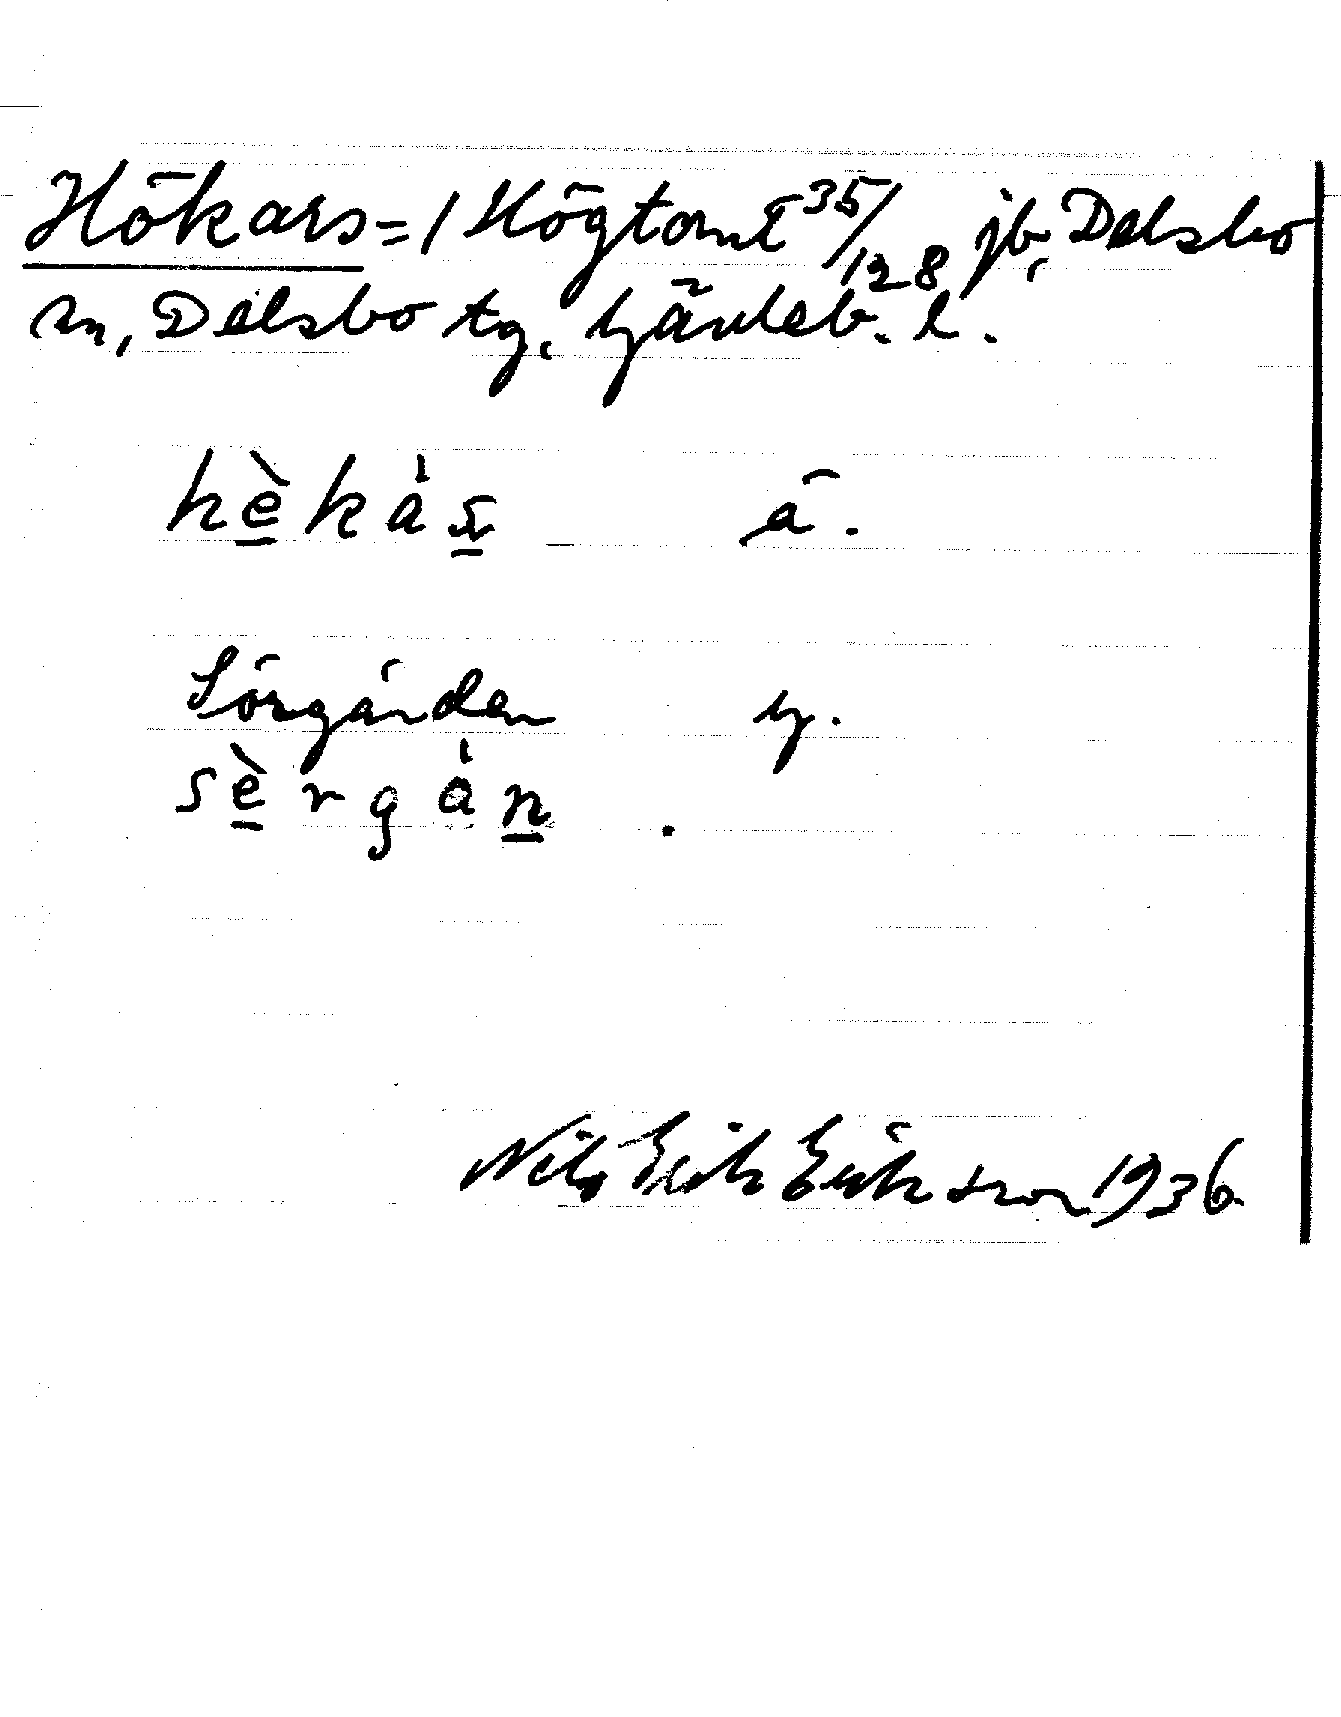 Hökars = 1 Högtomt 35/128 jb, Delsbo
sn, Delsbo tg, Gävleb. l.
hèkàs ä.
Sörgården g.
sèrgàn .
Nils Erik Eriksson 1936